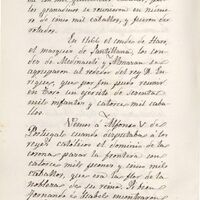 los granadinos se reunieron en número
de cinco mil caballos, y fueron der-
rotados.
En 1466 el conde de Haro,
el marques de Santillana, los con-
des de Medinaceli y Almazan se
agruparon al rededor del rey D. En-
rique, que por fin pudo reunir
en Toro un ejército de sesenta
mil infantes y catorce mil caba-
llos.
Vemos á Alfonso V de
Portugal cuando disputaba á los
reyes católicos el dominio de la
corona pasar la frontera con
catorce mil peones y cinco mil
caballos, que era la flor de la
nobleza de su reino. Si bien
Fernando é Isabel encontraron